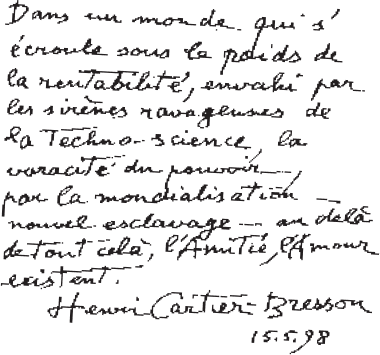 Dans un monde qui s'
écroule sous le poids de
la rentabilité, envahi par
les sirènes ravageuses de
la Techno-science, la
voracité du pouvoir —,
par la mondialisation —
nouvel esclavage — au delà
de tout celà, l'Amitié, l'Amour
existent.
Henri Cartier-Bresson
15.5.98